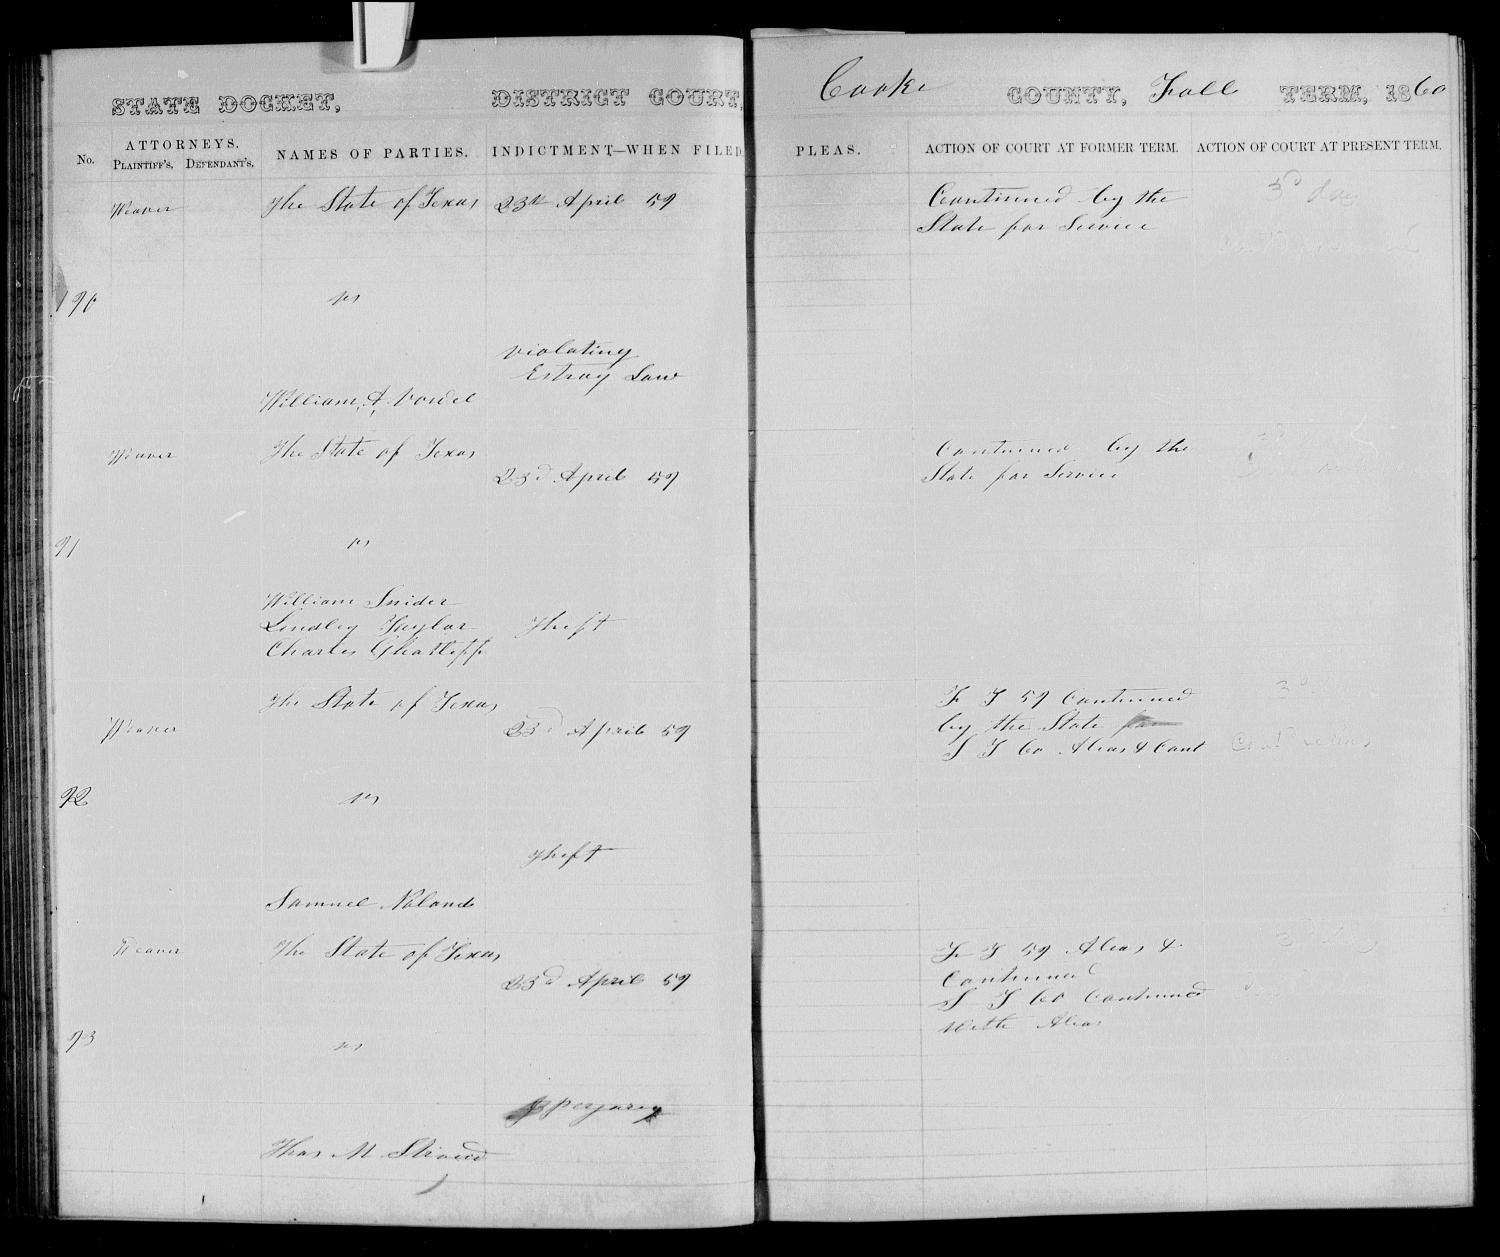 STATE DOCKET, DISTRICT COURT, Cooke COUNTY, Fall TERM, 1860
No. ATTORNEYS. PLAINTIFF'S, DEFENDANT'S, NAMES OF PARTIES. INDICTMENT,—WHEN FILED. PLEAS. ACTION OF COURT AT FORMER TERM. ACTION OF COURT AT PRESENT TERM.
Weaver The State of Texas 23d April 59 Continued by the 3d day
State for Service
190 vs
violating
Estray Law
William A.
Weaver The State of Texas Continued by the 3d
23d April 59 State for Service
91 vs
William Snider
Lindley Taylor Theft
Charles
The State of Texas F T 59 Continued 3d
Weaver 23d April 59 by the State for
S T 60 Alias & Cont Cont
92 vs
Theft
Samuel Noland
Weaver The State of Texas F T 59 Alias & 3
23d April 59 Continued
S T 60 Continued
with Alias
93 vs
perjury
Thos M Stroud